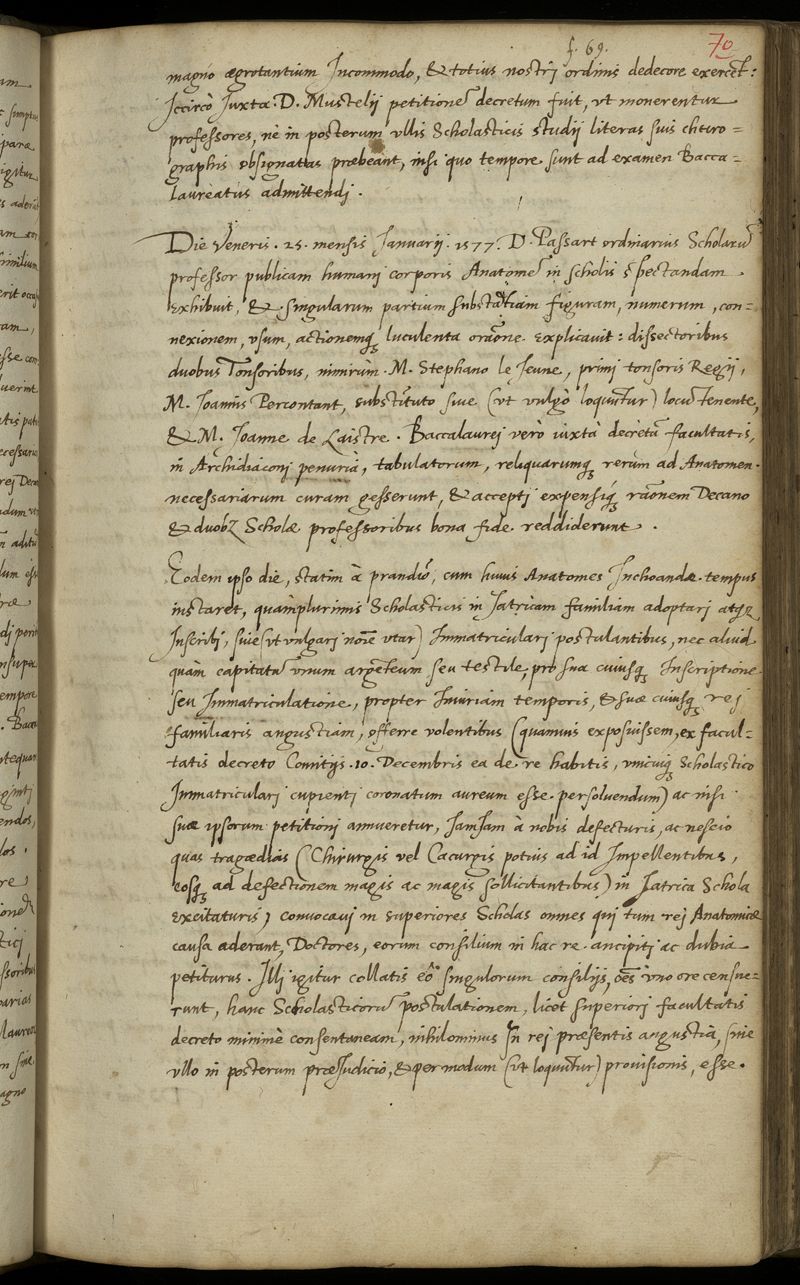 f. 69.
70
magno ægrotantium Incommodo, & totius nostrj ordinis dedecore exercet:
Iccircò Juxta D. Mustelij petitionē decretum fuit, vt monerentur
professores, nè in posterum vllis Scholasticis studij literas suis chiro=
graphis obsignatas præbeant, nisi quo tempore sunt ad examen Bacca=
laureatus admittendj.
Die Veneris . 25. mensis Januarij . 1577. D. Passart ordinarius Scholarū
professor publicam humanj corporis Anatomē in scholis spectandam
exhibuit, & singularum partium substātiam figuram, numerum, con=
nexionem, vsum, actionemq luculenta orāone explicauit: dissectoribus
duobus Tonsoribus, nimirùm M. Stephano le Jeune, primj tonsoris Regij,
M. Joannis Percontant, substituto siue (vt vulgò loquuntur) locū tenente,
& M. Joanne de Laistre. Baccalaurej verò iuxtà decreta facultatis,
in Archidiaconj penuria, tabulatorum, reliquarumq rerum ad Anatomen
necessariarum curam gesserunt, & acceptj expensiq raōnem Decano
& duobꝫ Scholæ professoribus bona fide reddiderunt.
Eodem ipso die, statim à prandio, cum huius Anatomes Inchoandæ tempus
instaret, quàmplurimis Scholasticis in Jatricam familiam adoptarj atq
Inscribj, siue (vt vulgarj noīe vtar) Immatricularj postulantibus, nec aliud
quàm capitatū vnum argēteum seu testile, pro sua cuiusq Inscriptione
seu Immatriculatione, propter Iniuriam temporis, & suæ cuiusq rej
familiaris angustiam, offerre volentibus (quamuis exposuissem, ex facul=
tatis decreto Comitijs .10. Decembris ea de re habitis, vnicuiq Scholastico
Immatricularj cupientj coronatum aureum esse persoluendum) ac nisi
suæ ipsorum petitionj annueretur, IamIam à nobis defecturis, ac nescio
quas tragædias (Chirurgis vel Cacurgis potius ad id Impellentibus,
eosq ad defectionem magis ac magis sollicitantibus) in Jatrica Schola
excitaturis, conuocauj in superiores Scholas omnes qui tum rej Anatomicæ
causa aderant, Doctores, eorum consilium in hac re ancipitj ac dubia
petiturus. Illj igitur collatis eō singulorum consilijs, oēs vno ore censue=
runt, hanc Scholasticorū postulationem, licet superiorj facultatis
decreto minimè consentaneam, nihilominus In rej præsentis angustia, sine
vllo in posterum præIudicio, & per modum (vt loquūtur) prouisionis, esse.